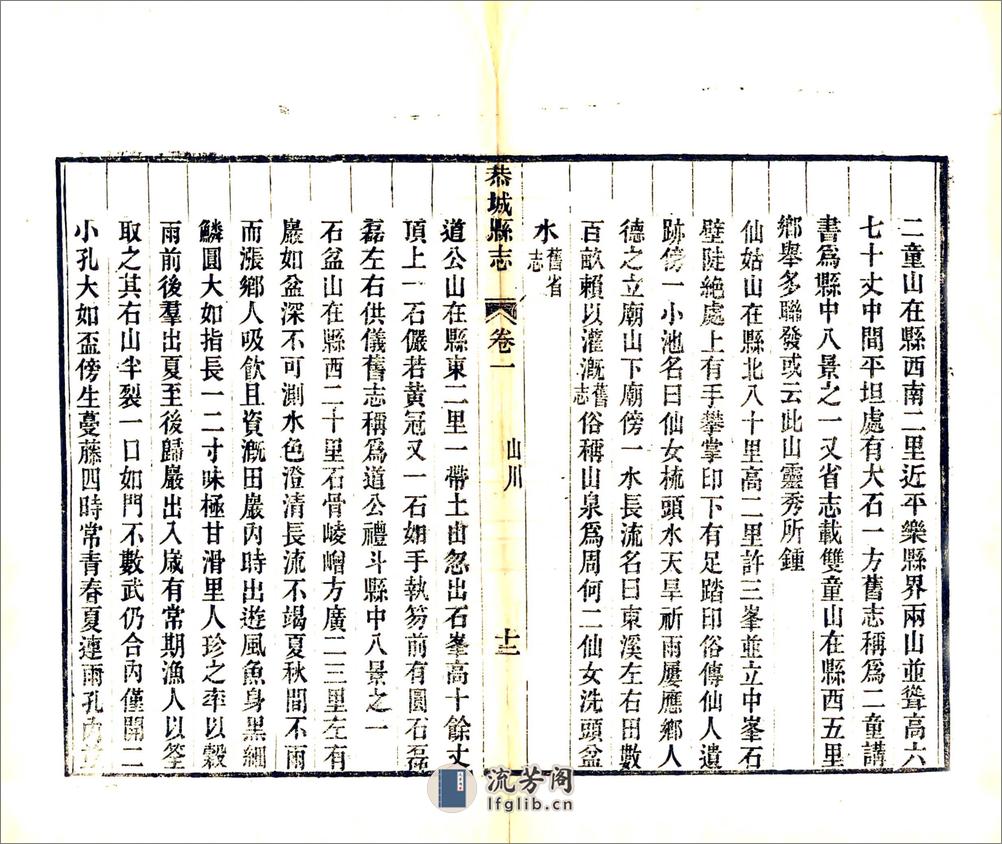 二童山在縣西南二里近平樂縣界兩山並聳高六
七十丈中間平坦處有大石一方舊志稱爲二童講
書爲縣中八景之一又省志載雙童山在縣西五里
鄉舉多聯發或云此山靈秀所鍾
仙姑山在縣北八十里高二里許三峯並立中峯石
壁陡絶處上有手攀掌印下有足踏印俗傳仙人遺
跡傍一小池名曰仙女梳頭水天旱祈雨屢應鄉人
德之立廟山下廟傍一水長流名曰東溪左右田數
百畝賴以灌漑舊志俗稱山泉爲周何二仙女洗頭盆
水舊省志
恭城縣志 卷一 山川 十二
道公山在縣東二里一帶土由忽出石峯高十餘丈
頂上一石儼若黃冠又一石如手執笏前有圓石磊
磊左右供儀舊志稱爲道公禮斗縣中八景之一
石盆山在縣西二十里石骨崚嶒方廣二三里左有
巖如盆深不可測水色澄清長流不竭夏秋間不雨
而漲鄉人吸飲且資漑田巖內時出遊風魚身黑細
鱗圓大如指長一二寸味極甘滑里人珍之率以穀
雨前後羣出夏至後歸巖出入歲有常期漁人以筌
取之其右山半裂一口如門不數武仍合內僅開二
小孔大如盃傍生蔓藤四時常青春夏連雨孔內
流芳阁
lfglib.cn